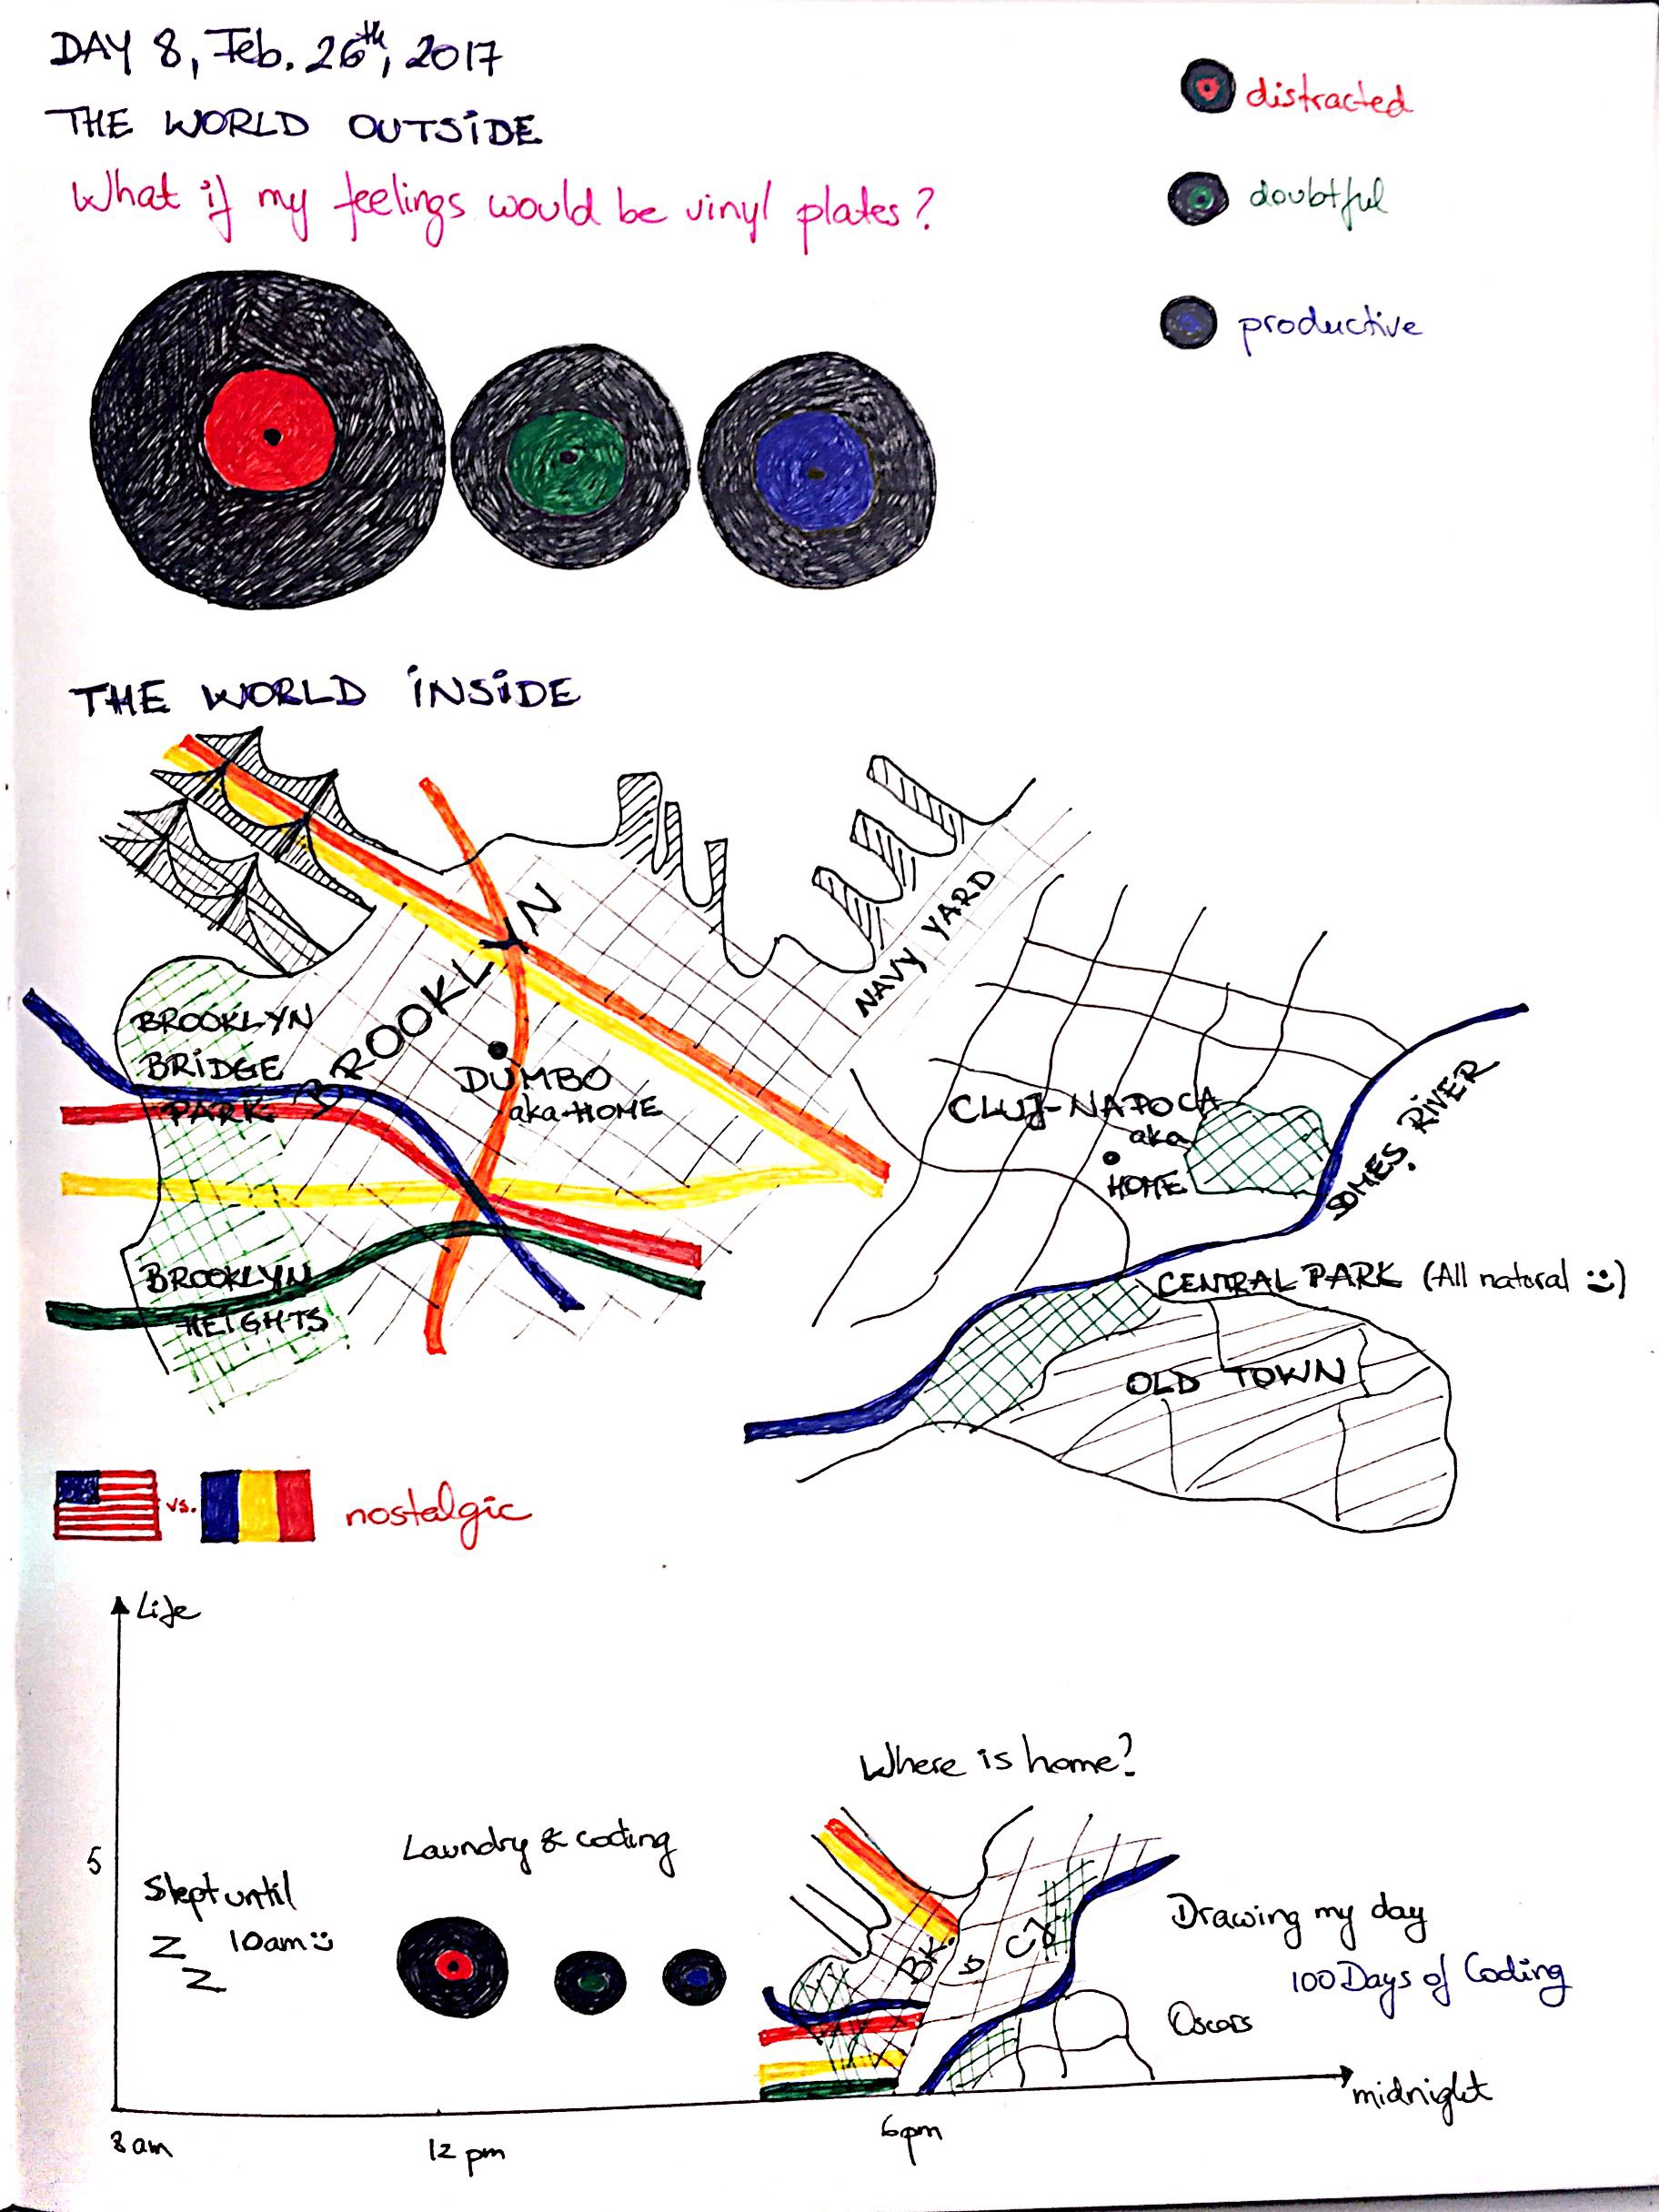 DAY 8, Feb. 26th, 2017
THE WORLD OUTSiDE
What if my feelings would be vinyl plates?
distracted
doubtful
productive
THE WORLD iNSiDE
BROOKLYN
NAVY YARD
BROOKLYN
BRiDGE
PARK
DUMBO
aka HOME
BROOKLYN
HEIGHTS
CLUJ-NAPOCA
aka
HOME
SOMEŞ RiVER
CENTRAL PARK (All natural :))
OLD TOWN
vs.
nostalgic
Life
Where is home?
5
Laundry & coding
Slept until
10am :)
Z
Z
BK.
CJ
Drawing my day
100 Days of Coding
Oscars
midnight
8 am
12 pm
6pm